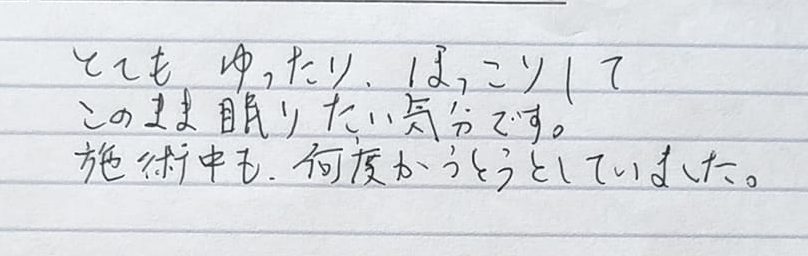 とても ゆったり、ほっこりして
このまま眠りたい気分です。
施術中も、何度かうとうとしていました。